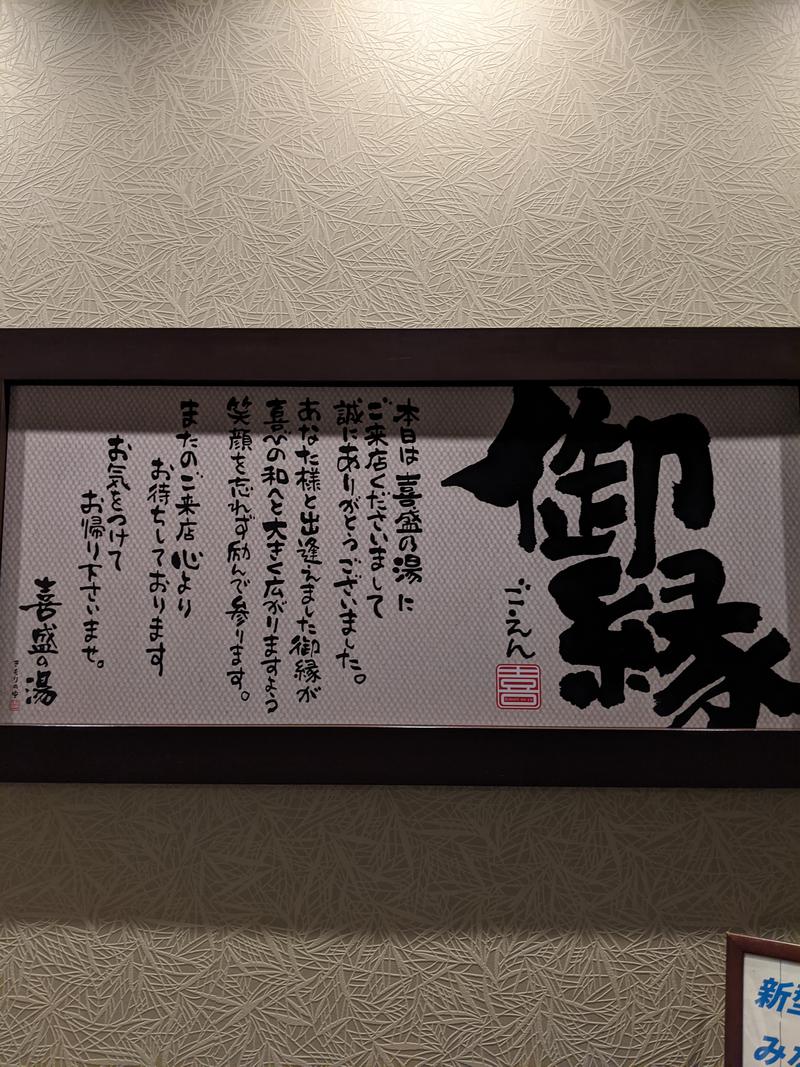 御縁
ごえん
喜
本日は喜盛の湯に
ご来店くださいまして
誠にありがとうございました。
あなた様と出逢えました御縁が
喜びの和へと大きく広がりますよう
笑顔を忘れず励んで参ります。
またのご来店心より
お待ちしております
お気をつけて
お帰り下さいませ。
喜盛の湯
新型
みな